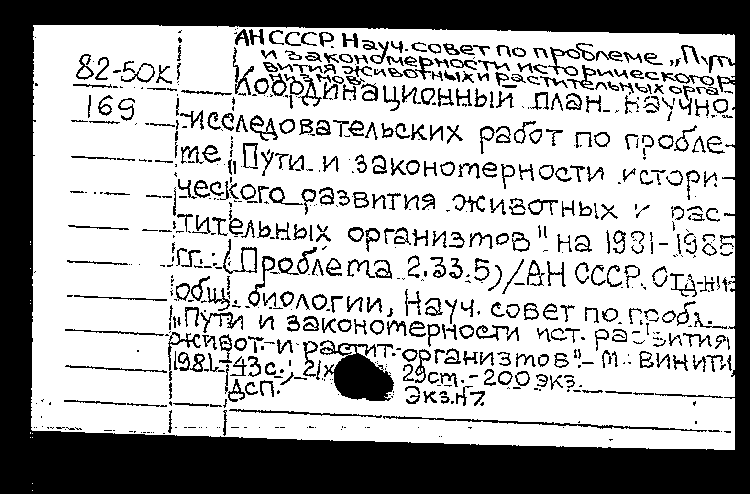 АН СССР. Науч. совет по проблеме „Пути
и закономерности исторического раз-
вития животных и растительных орга-
низмов"
82-50К
169
Координационный план научно-
исследовательских работ по пробле-
ме „Пути и закономерности истори-
ческого развития животных и рас-
тительных организмов" на 1981-1985
гг.: (Проблема 2.33.5) / АН СССР. Отд-ние
общ. биологии, Науч. совет по пробл.
„Пути и закономерности ист. развития
живот. и растит. организмов".- М.: ВИНИТИ,
1981.- 43 с.; 21х29 см.- 200 экз.
ДСП. Экз. №7.